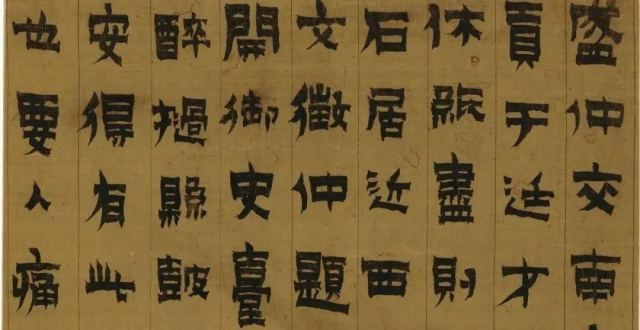 盛仲交南
貢于廷才
休紙盡則
石居近西
文徵仲題
開御史臺
醉撾縣鼓
安得有此
也要人痛